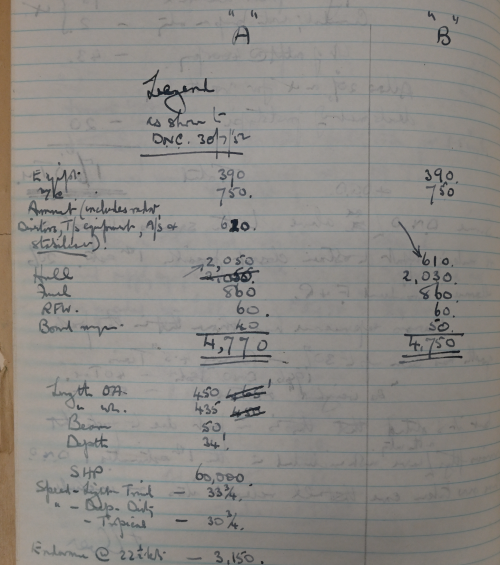 "A" "B"
Legend
as shown to
DNC. 30/7/52
Equipt. 390 390.
M/c 750. 750
Armament (includes radar
Directors, T/s equipment, A/S &
stabilizers). 620 610.
Hull 2,050 2,030.
2,030.
Fuel 860 860.
RFW. 60. 60.
Board mgn. 40 50.
4,770 4,750
Length OA. 450 465'
" wl. 435 450
Beam 50
Depth 34'.
SHP 60,000.
Speed - Light Trial — 33¾
" - Deep - Dirty
- Tropical — 30¾.
Endurance @ 22 kts — 3,150.